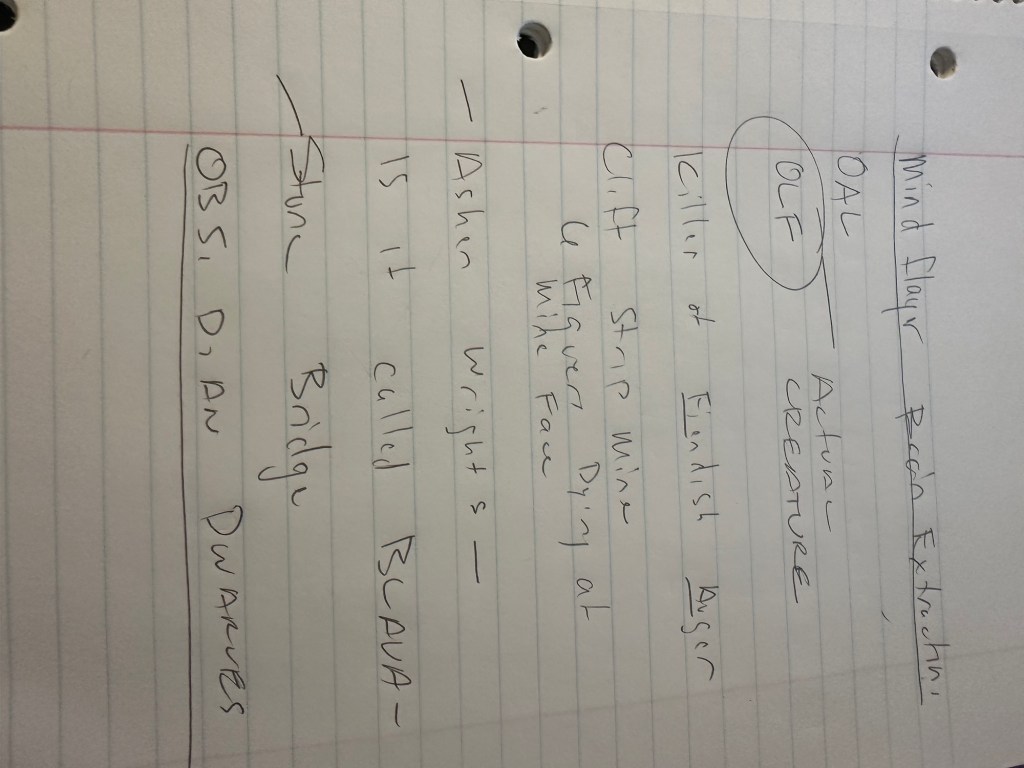 Mind flayr Brain Extraction.
OAL
OLF Actual
CREATURE
Killer of Fiendish Auger
Clift Strip Mine
6 Figures Dying at
Mine Face
- Asher Wrights -
Is it called BLAVA-
- Stone Bridge
OBSIDIAN DWARVES